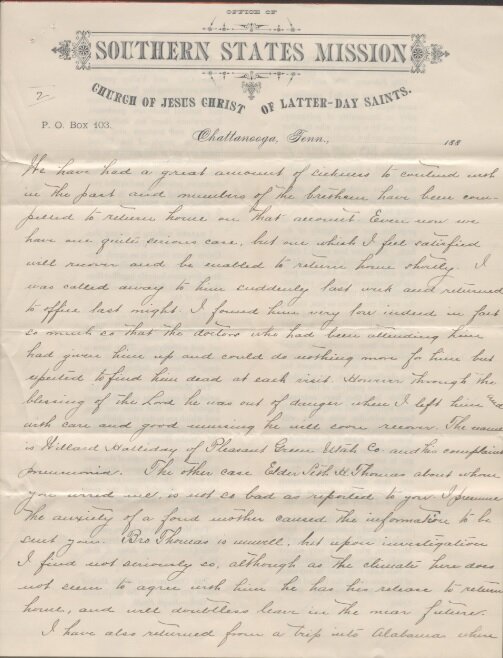 OFFICE OF
SOUTHERN STATES MISSION
CHURCH OF JESUS CHRIST OF LATTER-DAY SAINTS.
2
P. O. Box 103.
Chattanooga, Tenn., 188
We have had a great amount of sickness to contend with
in the past and numbers of the brethren have been com-
pelled to return home on that account. Even now we
have one quite serious case, but one which I feel satisfied
will recover and be enabled to return home shortly. I
was called away to him suddenly last week and returned
to office last night. I found him very low indeed in fact
so much so that the doctors who had been attending him
had given him up and could do nothing more for him but
expected to find him dead at each visit. However through the
blessing of the Lord he was out of danger when I left him and
with care and good nursing he will soon recover. The name
is Willard Halliday of Pleasant Green Utah Co. and his complaint
pneumonia. The other case Elder Seth H. Thomas about whom
you wired me, is not so bad as reported to you. I presume
the anxiety of a fond mother caused the information to be
sent you. Bro Thomas is unwell, but upon investigation
I find not seriously so, although as the climate here does
not seem to agree with him he has his release to return
home, and will doubtless leave in the near future.
I have also returned from a trip into Alabama where